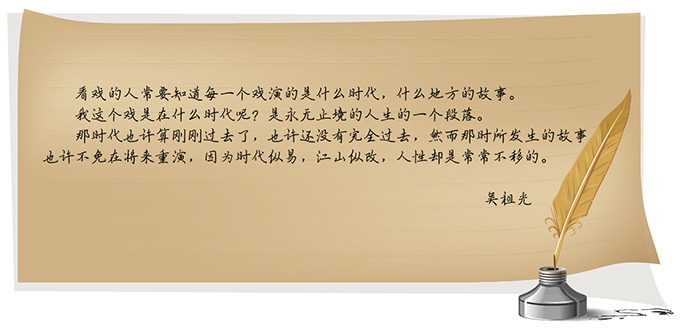 看戏的人常要知道每一个戏演的是什么时代，什么地方的故事。
我这个戏是在什么时代呢？是永无止境的人生的一个段落。
那时代也许算刚刚过去了，也许还没有完全过去，然而那时所发生的故事
也许不免在将来重演，因为时代纵易，江山纵改，人性却是常常不移的。
吴祖光